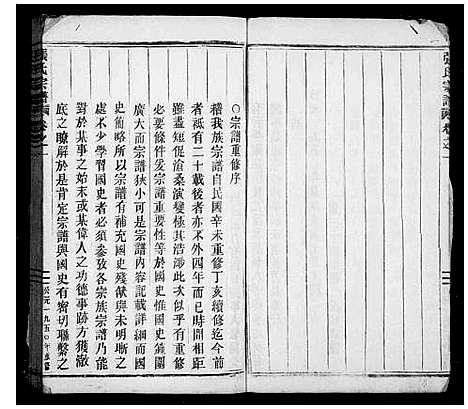 張氏宗譜 卷之一
〇宗譜重修序
稽我族宗譜自民國辛未重修丁亥續修迄今前
者祗有二十載後者亦不外四年而已時間相距
雖盡短促滄桑演變極其浩渺此次似乎有重修
必要條件爰宗譜重要性等於國史惟國史範圍
廣大而宗譜狹小可是宗譜內容記載詳細而國
史簡略所以宗譜有補充國史殘獻與未明晰之
處不少學習國史者必須參攷各宗族宗譜乃能
對於某事之始末或某偉人之功德事跡方獲澈
底之瞭解於是肯定宗譜與國史有密切聯繫之
張氏宗譜 卷之一
公元一九五〇年重修